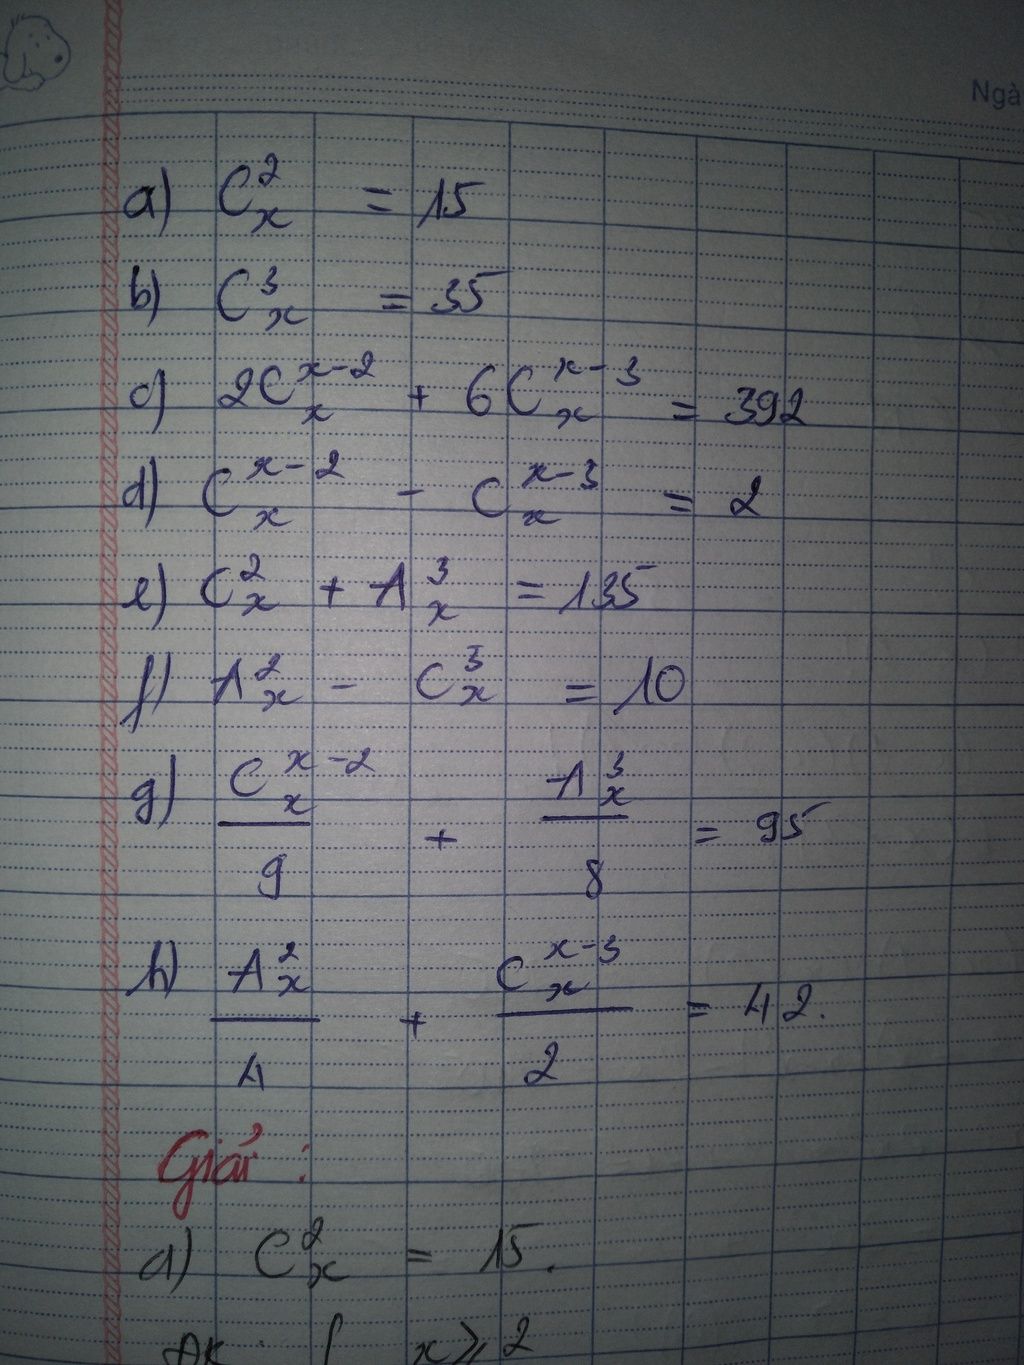 Ngà
a) C²ₓ = 15
b) C³ₓ = 35
c) 2Cₓ^{x-2} + 6Cₓ^{x-3} = 392
d) Cₓ^{x-2} - Cₓ^{x-3} = 2
e) C²ₓ + A³ₓ = 135
f) A²ₓ - C³ₓ = 10
g) Cₓ^{x-2}/9 + A³ₓ/8 = 95
h) A²ₓ/4 + Cₓ^{x-3}/2 = 42.
Giải :
a) C²ₓ = 15.
ĐK : { x ⩾ 2